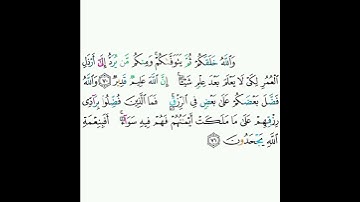 وَاللَّهُ خَلَقَكُمْ ثُمَّ يَتَوَفَّاكُمْ ۚ وَمِنكُم مَّن يُرَدُّ إِلَىٰ أَرْذَلِ
الْعُمُرِ لِكَيْ لَا يَعْلَمَ بَعْدَ عِلْمٍ شَيْئًا ۚ إِنَّ اللَّهَ عَلِيمٌ قَدِيرٌ ۝٧٠ وَاللَّهُ
فَضَّلَ بَعْضَكُمْ عَلَىٰ بَعْضٍ فِي الرِّزْقِ ۚ فَمَا الَّذِينَ فُضِّلُوا بِرَادِّي
رِزْقِهِمْ عَلَىٰ مَا مَلَكَتْ أَيْمَانُهُمْ فَهُمْ فِيهِ سَوَاءٌ ۚ أَفَبِنِعْمَةِ
اللَّهِ يَجْحَدُونَ ۝٧١